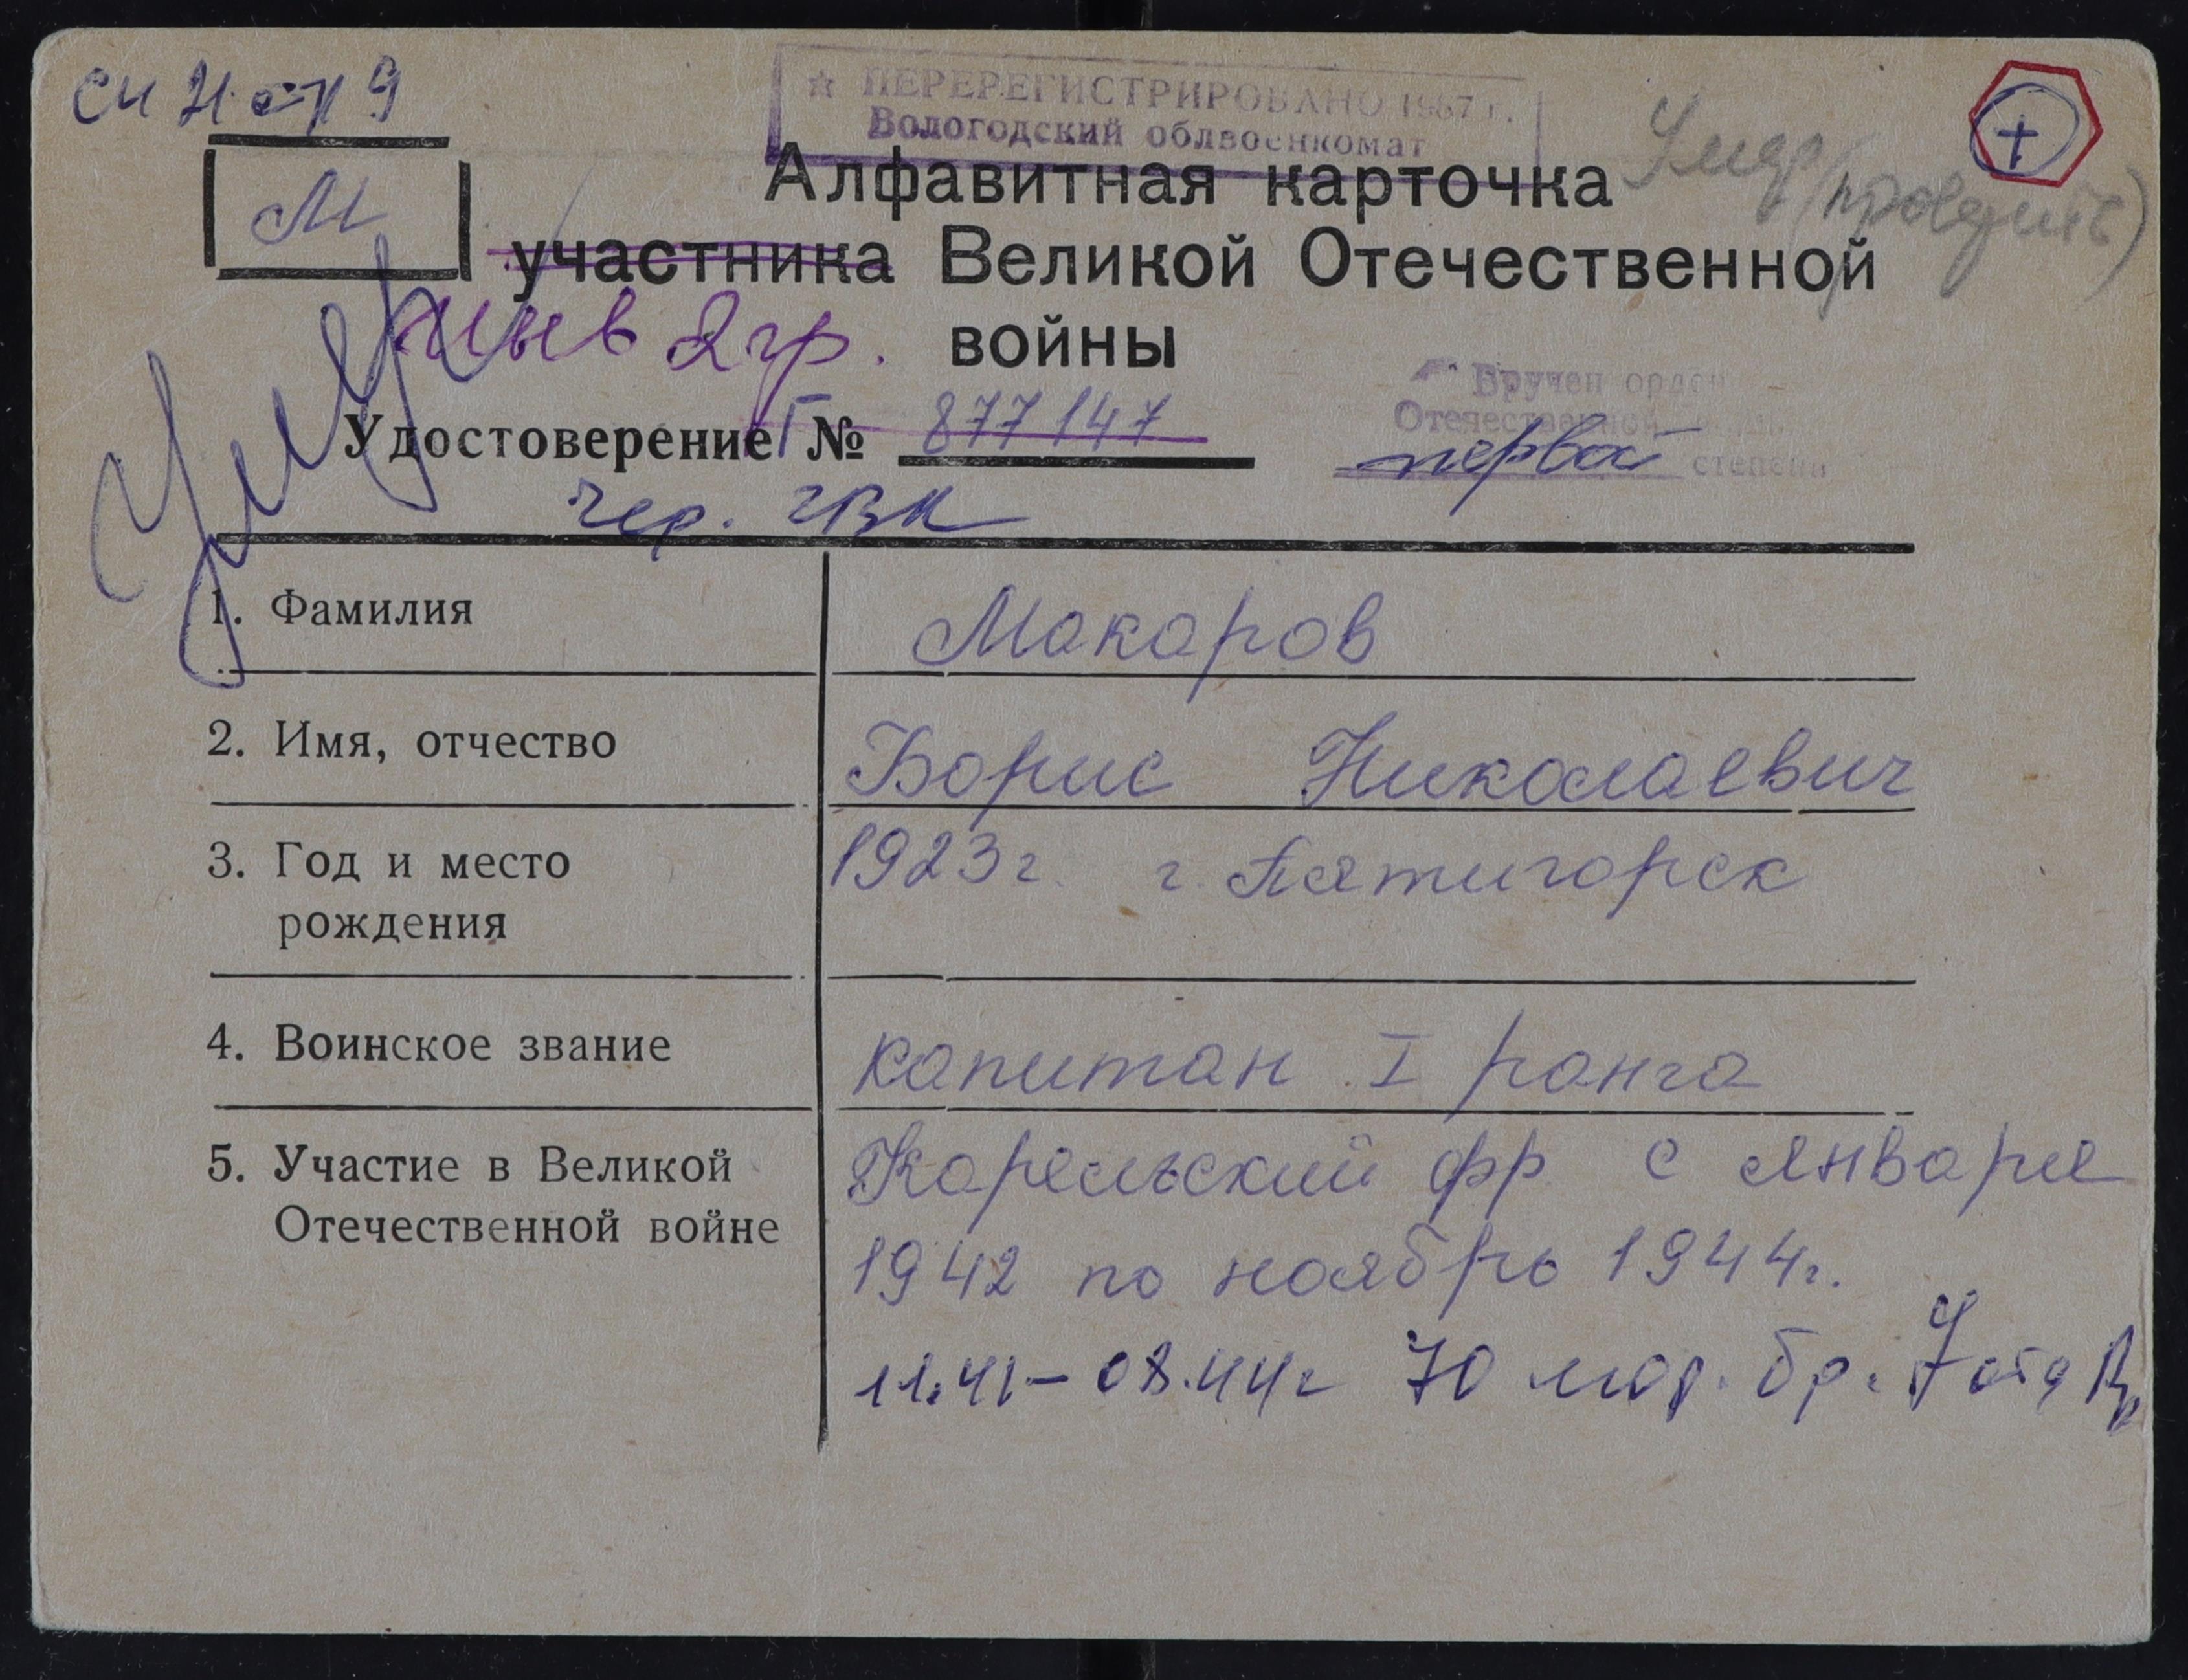 ☆ ПЕРЕРЕГИСТРИРОВАНО 1987 г.
Вологодский облвоенкомат
М
Алфавитная карточка
Умер
участника Великой Отечественной
инв 2 гр. войны
Умер
Вручен орден
Отечественной
первой степени
Удостоверение Г № 877147
Чер. ГВК
1. Фамилия Макаров
2. Имя, отчество Борис Николаевич
3. Год и место 1923 г. г. Пятигорск
рождения
4. Воинское звание капитан I ранга
5. Участие в Великой Карельский фр с января
Отечественной войне 1942 по ноябрь 1944 г.
11.41 – 08.44 г 70 мор. бр. 7 отд